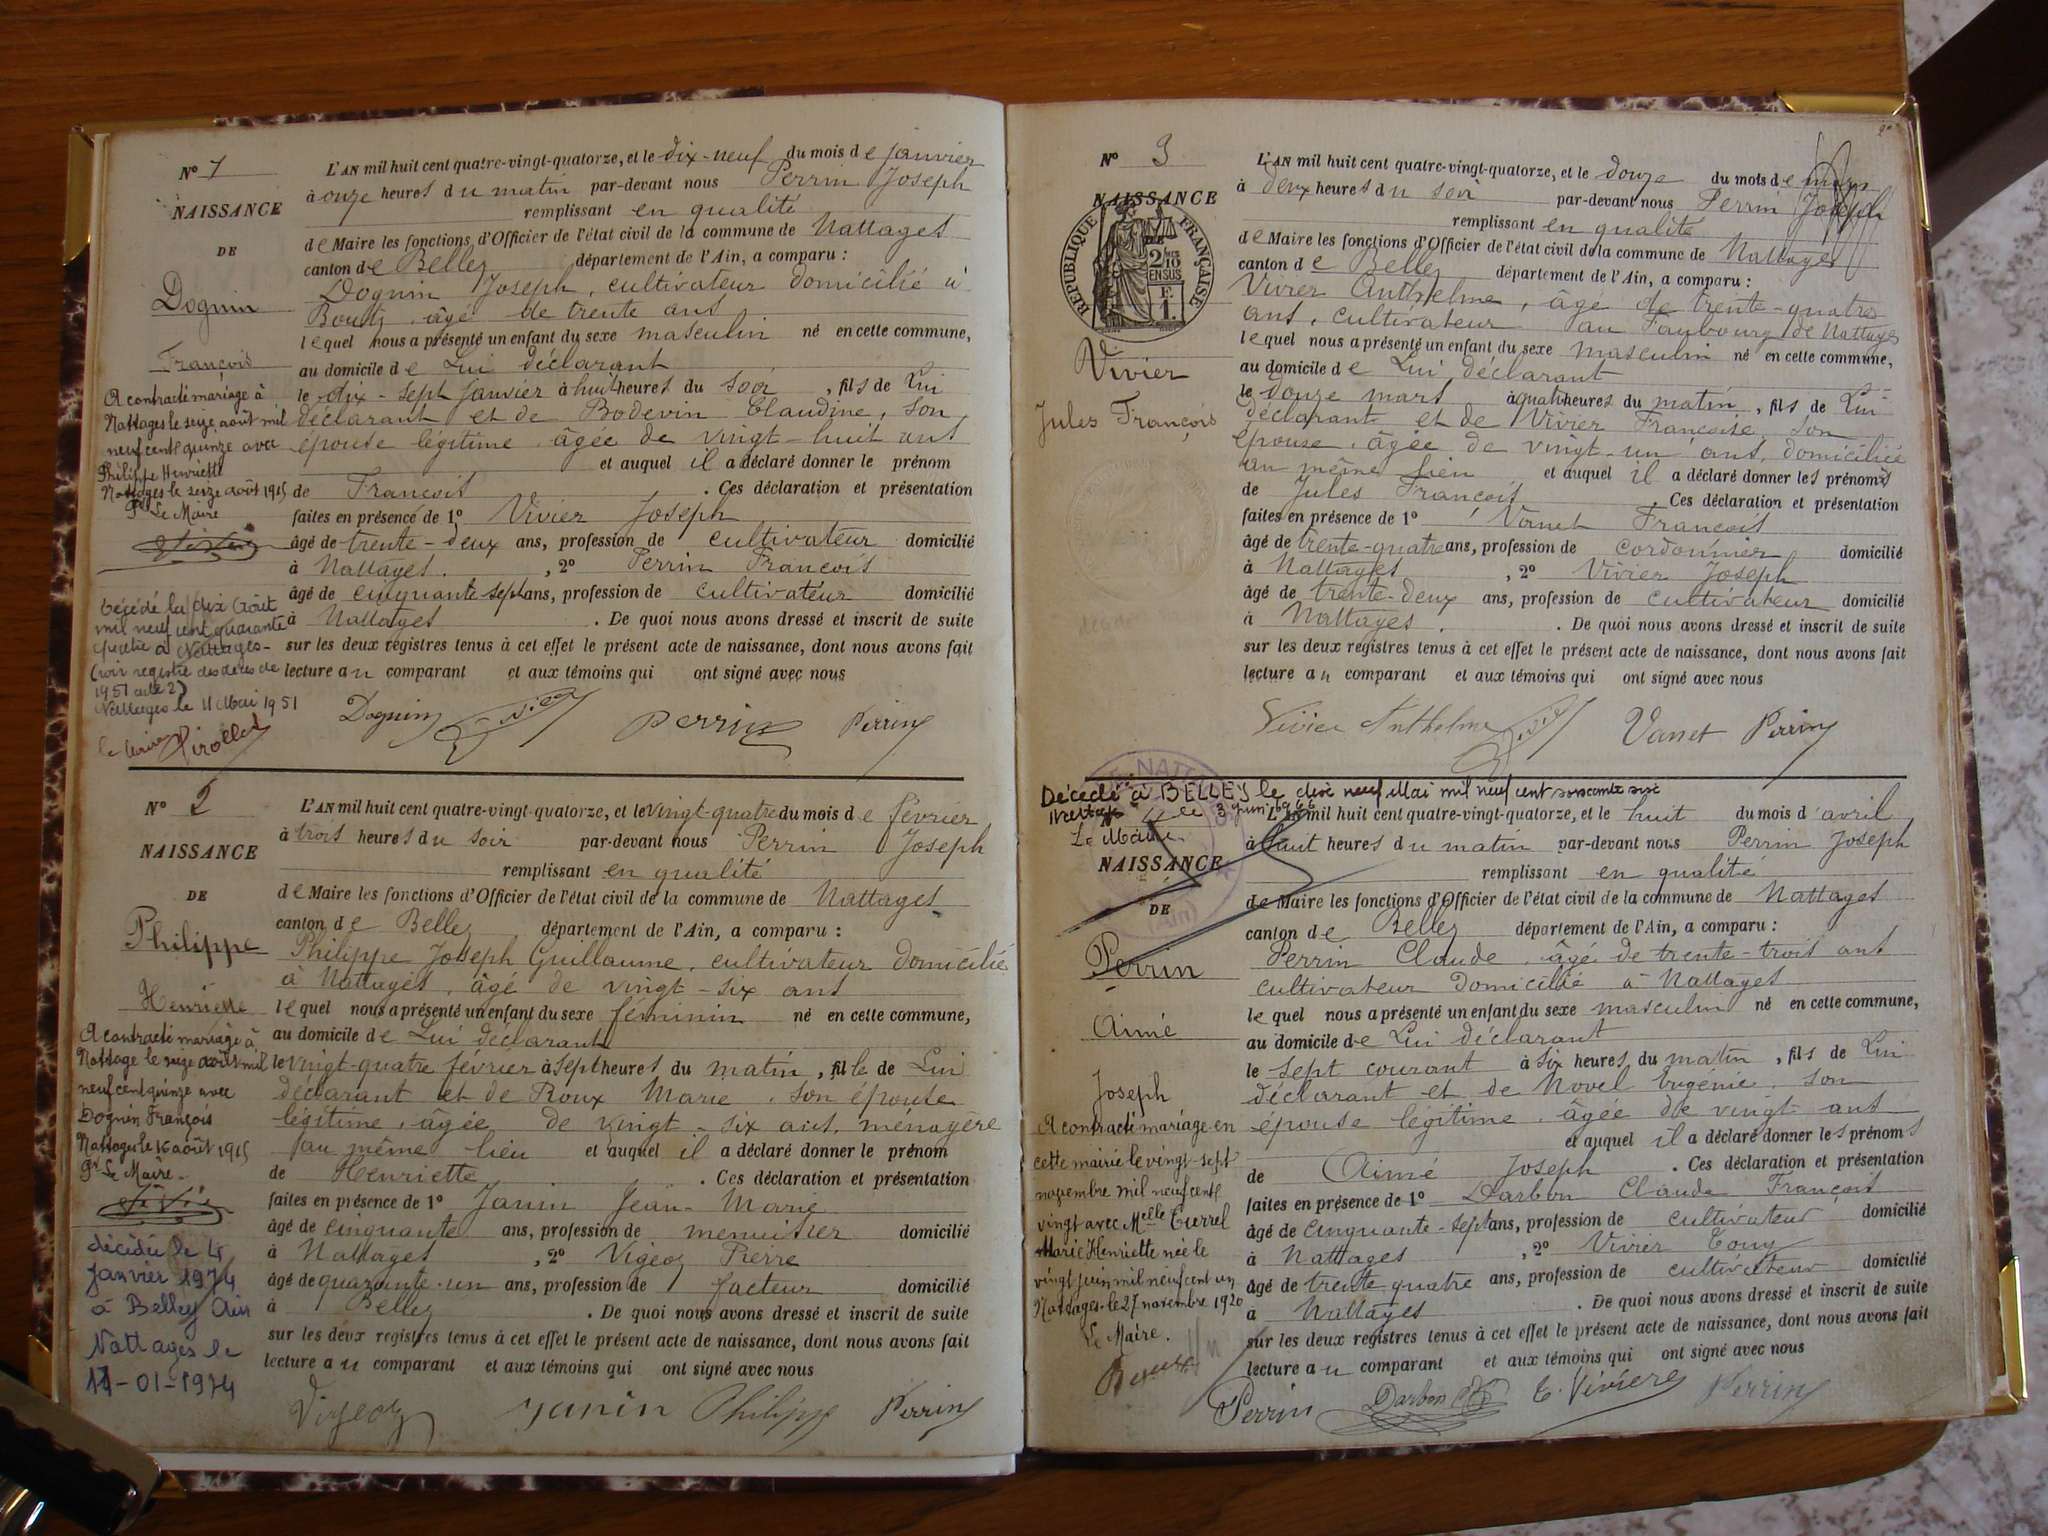 N° 1
NAISSANCE
DE
Dognin
François
A contracté mariage à
Nattages le seize août mil
neuf cent quinze avec
Philippe Henriette
Nattages le seize août 1915
Pr Le Maire
Décédé le dix Août
mil neuf cent quarante
quatre à Nattages -
(voir registre des décès de
1951 acte 2)
Nattages le 11 Mai 1951
L'AN mil huit cent quatre-vingt-quatorze, et le dix-neuf du mois de janvier
à onze heures du matin par-devant nous Perrin Joseph
remplissant en qualité
de Maire les fonctions d'Officier de l'état civil de la commune de Nattages
canton de Belley département de l'Ain, a comparu :
Dognin Joseph, cultivateur domicilié à
âgé de trente ans
lequel nous a présenté un enfant du sexe masculin né en cette commune,
au domicile de Lui déclarant
le dix-sept janvier à huit heures du soir, fils de Lui
déclarant et de Bodevin Claudine, son
épouse légitime, âgée de vingt-huit ans
et auquel il a déclaré donner le prénom
de François. Ces déclaration et présentation
faites en présence de 1° Vivier Joseph
âgé de trente-deux ans, profession de cultivateur domicilié
à Nattages, 2° Perrin François
âgé de cinquante-sept ans, profession de cultivateur domicilié
à Nattages. De quoi nous avons dressé et inscrit de suite
sur les deux registres tenus à cet effet le présent acte de naissance, dont nous avons fait
lecture au comparant et aux témoins qui ont signé avec nous
Dognin Perrin Perrin
N° 2
NAISSANCE
DE
Philippe
Henriette
A contracté mariage à
Nattage le seize août mil
neuf cent quinze avec
Dognin François
Nattages le 16 août 1915
Pr Le Maire.
décédée le 4
Janvier 1974
à Belley Ain
Nattages le
11-01-1974
L'AN mil huit cent quatre-vingt-quatorze, et le vingt-quatre du mois de février
à trois heures du soir par-devant nous Perrin Joseph
remplissant en qualité
de Maire les fonctions d'Officier de l'état civil de la commune de Nattages
canton de Belley département de l'Ain, a comparu :
Philippe Joseph Guillaume, cultivateur domicilié
à Nattages, âgé de vingt-six ans
lequel nous a présenté un enfant du sexe féminin né en cette commune,
au domicile de Lui déclarant
le vingt-quatre février à sept heures du matin, fille de Lui
déclarant et de Roux Marie, son épouse
légitime, âgée de vingt-six ans, ménagère
au même lieu et auquel il a déclaré donner le prénom
de Henriette. Ces déclaration et présentation
faites en présence de 1° Janin Jean-Marie
âgé de cinquante ans, profession de menuisier domicilié
à Nattages, 2° Vigeoz Pierre
âgé de quarante-un ans, profession de facteur domicilié
à Belley. De quoi nous avons dressé et inscrit de suite
sur les deux registres tenus à cet effet le présent acte de naissance, dont nous avons fait
lecture au comparant et aux témoins qui ont signé avec nous
Vigeoz Janin Philippe Perrin
N° 3
NAISSANCE
RÉPUBLIQUE FRANÇAISE
2/10 EN SUS
F. 1.
Vivier
Jules François
L'AN mil huit cent quatre-vingt-quatorze, et le douze du mois de mars
à deux heures du soir par-devant nous Perrin Joseph
remplissant en qualité
de Maire les fonctions d'Officier de l'état civil de la commune de Nattages
canton de Belley département de l'Ain, a comparu :
Vivier Anthelme, âgé de trente-quatre
ans, cultivateur au Faubourg de Nattages
lequel nous a présenté un enfant du sexe masculin né en cette commune,
au domicile de Lui déclarant
le douze mars à quatre heures du matin, fils de Lui
déclarant et de Vivier Françoise, son
épouse, âgée de vingt-un ans, domiciliée
au même lieu et auquel il a déclaré donner les prénoms
de Jules François. Ces déclaration et présentation
faites en présence de 1° Vanet François
âgé de trente-quatre ans, profession de cordonnier domicilié
à Nattages, 2° Vivier Joseph
âgé de trente-deux ans, profession de cultivateur domicilié
à Nattages. De quoi nous avons dressé et inscrit de suite
sur les deux registres tenus à cet effet le présent acte de naissance, dont nous avons fait
lecture au comparant et aux témoins qui ont signé avec nous
Vivier Anthelme Vanet Perrin
Décédé à BELLEY le dix neuf Mai mil neuf cent soixante six
Nattages le 3 Juin 1966
Le Maire
NAISSANCE
DE
Perrin
Aimé
Joseph
A contracté mariage en
cette mairie le vingt-sept
novembre mil neuf cent
vingt avec Melle Currel
Marie Henriette née le
vingt juin mil neuf cent un
Nattages le 27 novembre 1920
Le Maire.
L'AN mil huit cent quatre-vingt-quatorze, et le huit du mois d'avril
à huit heures du matin par-devant nous Perrin Joseph
remplissant en qualité
de Maire les fonctions d'Officier de l'état civil de la commune de Nattages
canton de Belley département de l'Ain, a comparu :
Perrin Claude, âgé de trente-trois ans
cultivateur domicilié à Nattages
lequel nous a présenté un enfant du sexe masculin né en cette commune,
au domicile de Lui déclarant
le sept courant à six heures du matin, fils de Lui
déclarant et de Novel Eugénie, son
épouse légitime, âgée de vingt ans
et auquel il a déclaré donner les prénoms
de Aimé Joseph. Ces déclaration et présentation
faites en présence de 1° Darbon Claude François
âgé de cinquante-sept ans, profession de cultivateur domicilié
à Nattages, 2° Vivier Tony
âgé de trente quatre ans, profession de cultivateur domicilié
à Nattages. De quoi nous avons dressé et inscrit de suite
sur les deux registres tenus à cet effet le présent acte de naissance, dont nous avons fait
lecture au comparant et aux témoins qui ont signé avec nous
Perrin Darbon Perrin